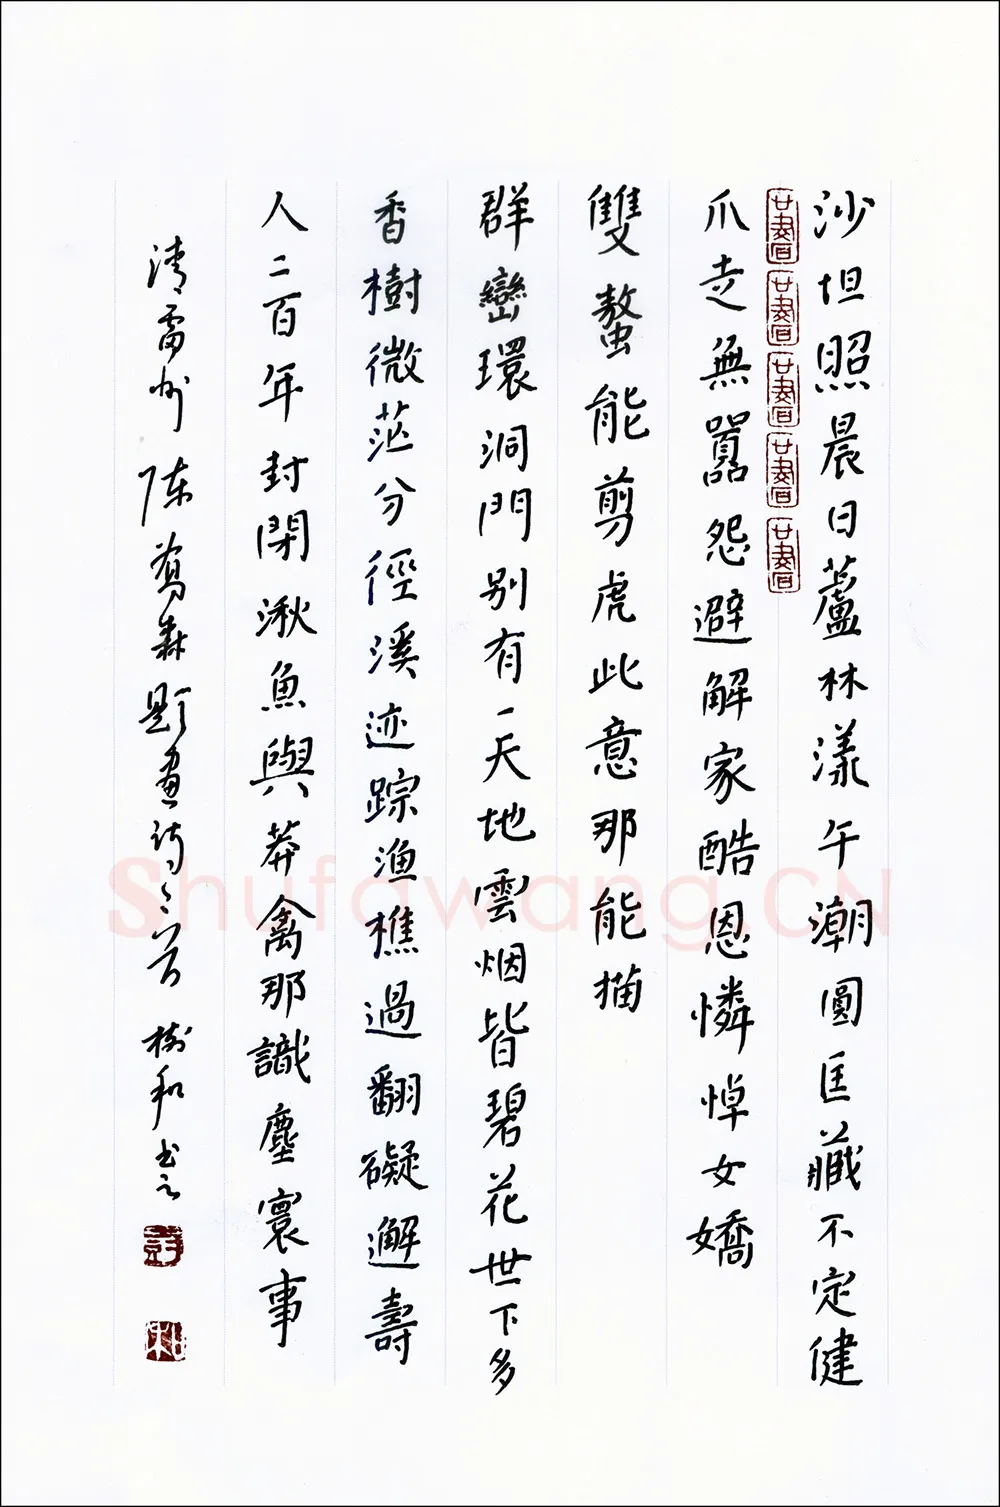 沙坦照晨日蘆林漾午潮圓匡藏不定健
爪走無囂怨避解家酷恩憐悼女嬌
雙螯能剪虎此意那能描
群巒環洞門别有一天地雲烟皆碧花世下多
香樹微茫分徑溪迹踪漁樵過翻礙邂壽
人二百年封閉湫魚與莽禽那識塵寰事
清雷州陈喬森题画诗二首 樹和书之
Shufawang.CN